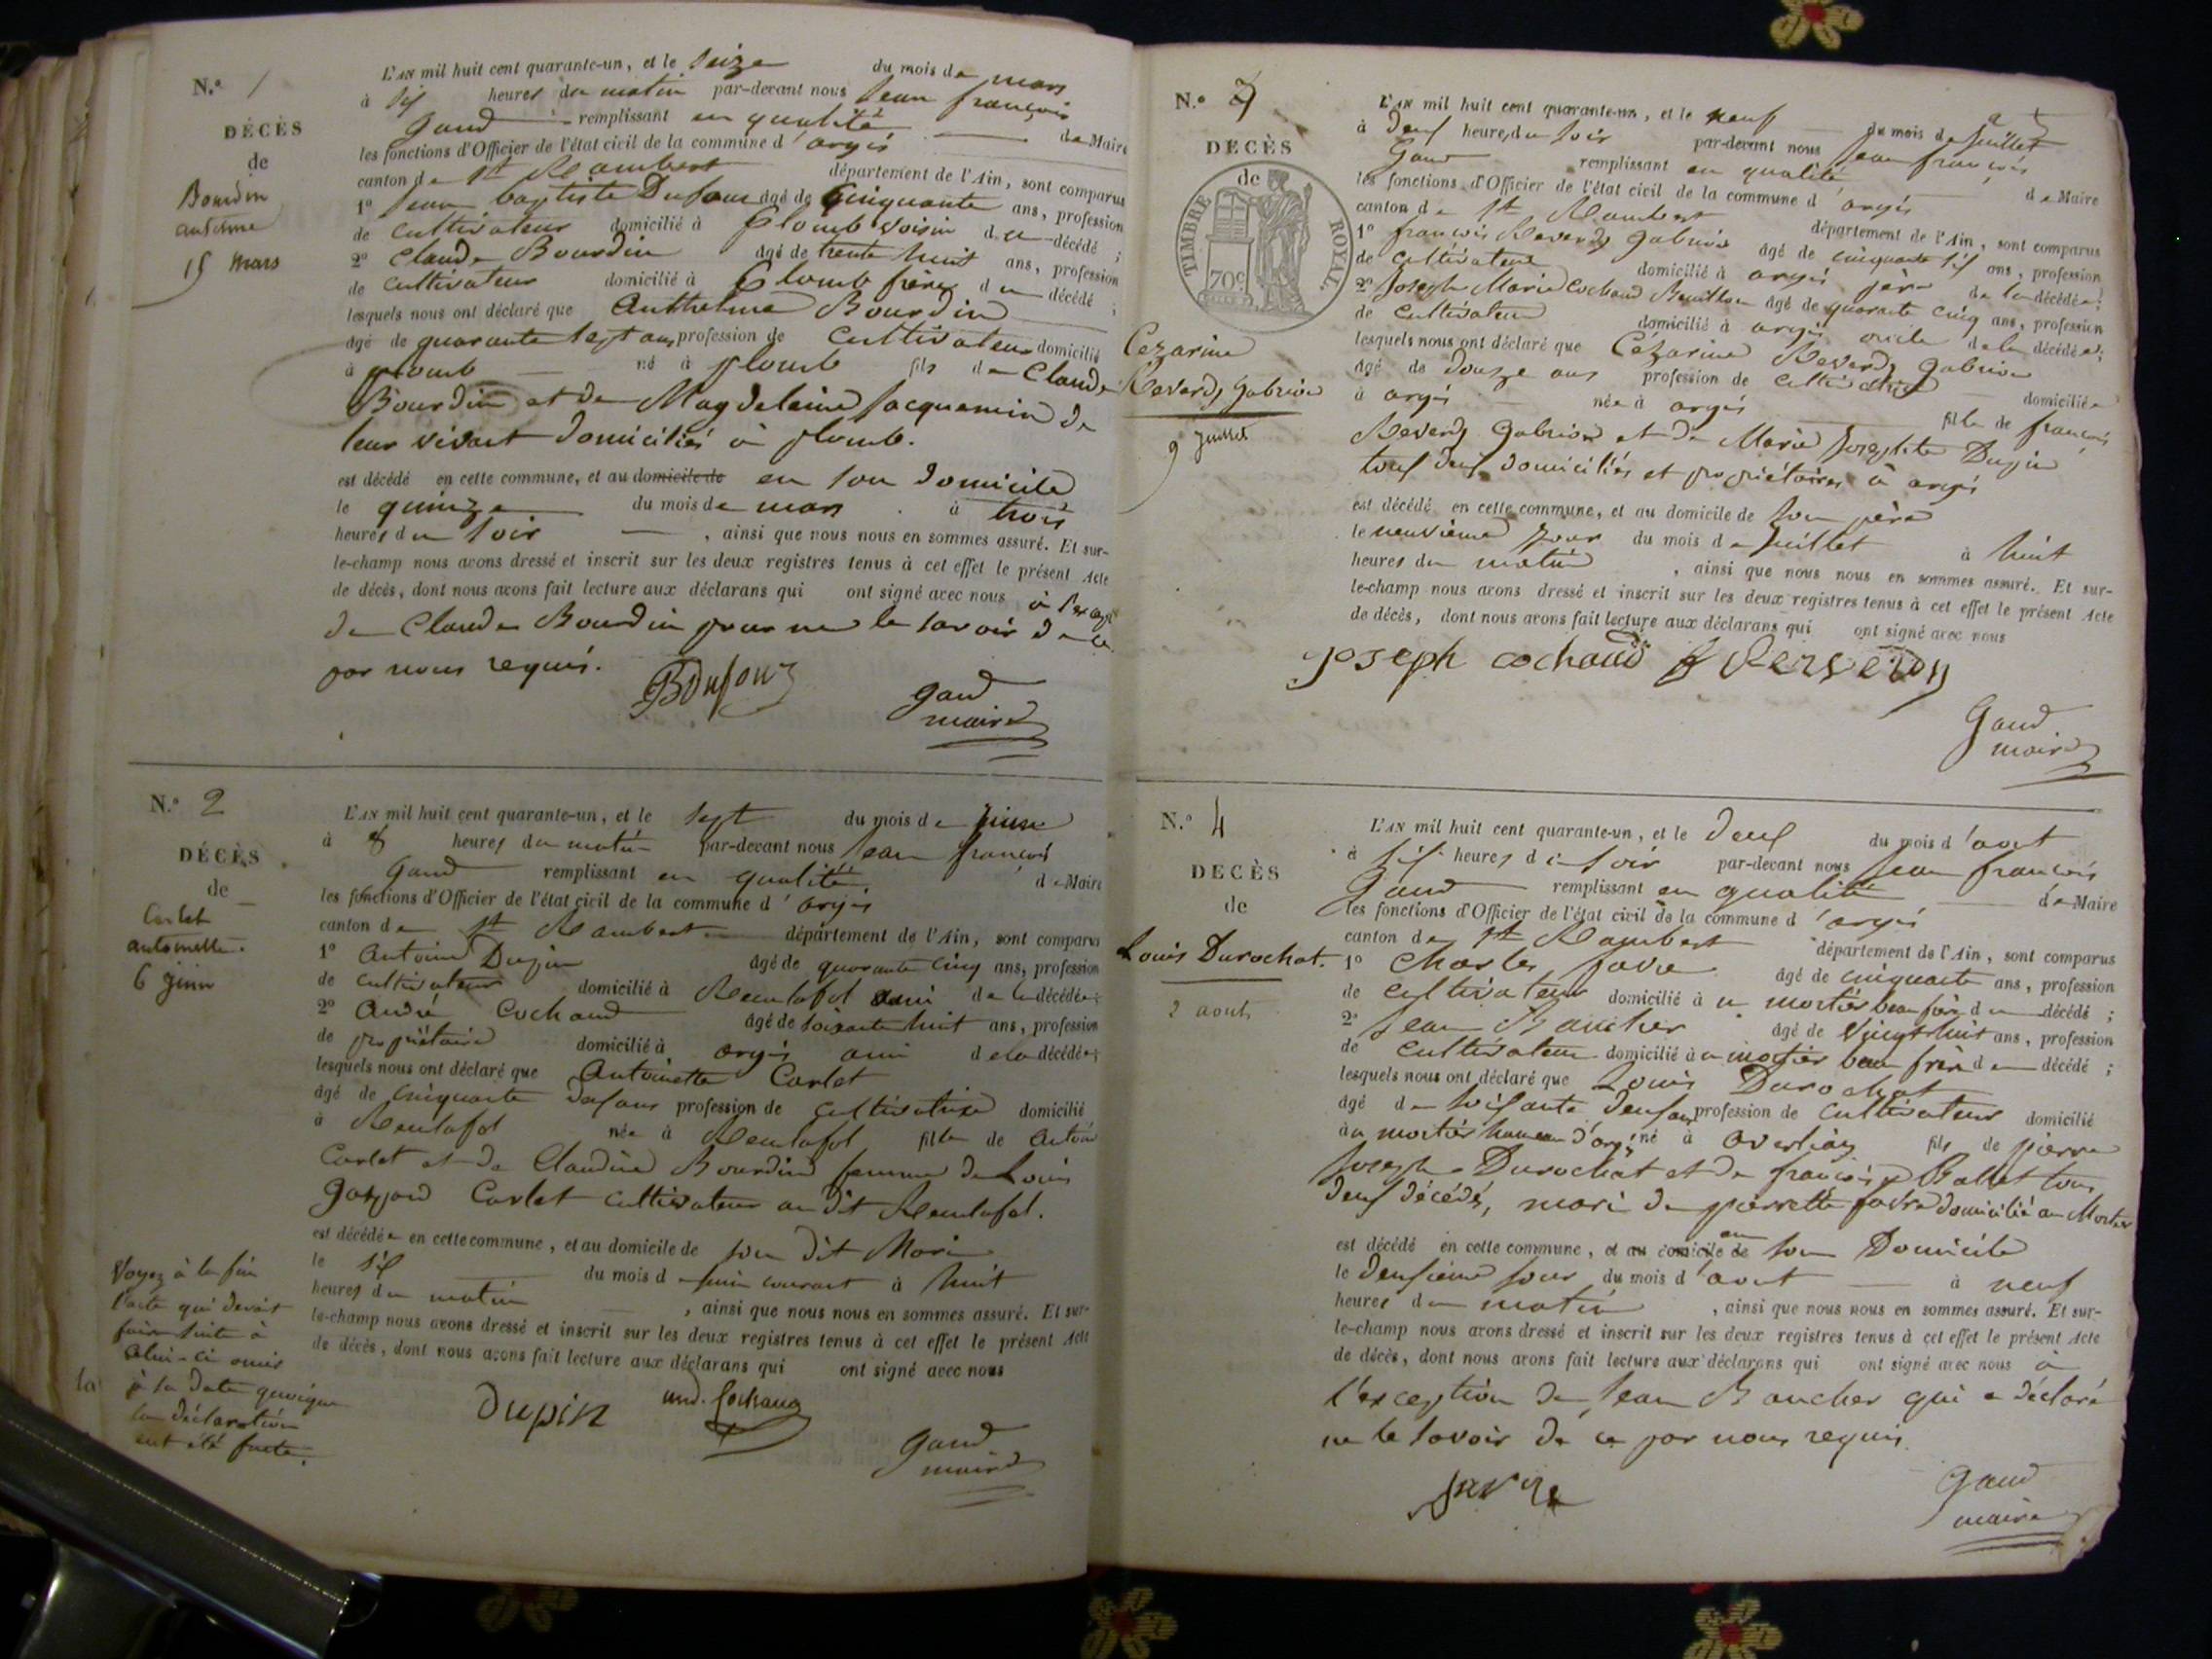 N.o 1
DÉCÈS
de
Bourdin
antelme
15 mars
L'AN mil huit cent quarante-un, et le seize du mois de mars
à six heures du matin par-devant nous Jean françois
Gaud remplissant en qualité de Maire
les fonctions d'Officier de l'état civil de la commune d'argis
canton de St Rambert département de l'Ain, sont comparus
1o Jean baptiste Dufour âgé de Cinquante ans, profession
de cultivateur domicilié à Plomb voisin du décédé ;
2o Claude Bourdin âgé de trente huit ans, profession
de cultivateur domicilié à Plomb frère du décédé ;
lesquels nous ont déclaré que Anthelme Bourdin
âgé de quarante sept ans profession de Cultivateur domicilié
à plomb né à plomb fils de Claude
Bourdin et de Magdelaine Jacquemin de
leur vivant domiciliés à plomb.
est décédé en cette commune, et au domicile de en son domicile
le quinze du mois de mars à trois
heures du soir , ainsi que nous nous en sommes assuré. Et sur-
le-champ nous avons dressé et inscrit sur les deux registres tenus à cet effet le présent Acte
de décès, dont nous avons fait lecture aux déclarans qui ont signé avec nous à l'except
de Claude Bourdin pour ne le savoir de ce
par nous requis.
Dufour Gaud
maire
N.o 2
DÉCÈS
de
Carlet
antoinette.
6 juin
L'AN mil huit cent quarante-un, et le sept du mois de juin
à 8 heures du matin par-devant nous Jean françois
Gaud remplissant en qualité de Maire
les fonctions d'Officier de l'état civil de la commune d'argis
canton de St Rambert département de l'Ain, sont comparus
1o Antoine Dupin âgé de quarante cinq ans, profession
de cultivateur domicilié à Reculafol ami de la décédée ;
2o André Cochaud âgé de soixante huit ans, profession
de propriétaire domicilié à argis ami de la décédée ;
lesquels nous ont déclaré que Antoinette Carlet
âgé de cinquante profession de cultivatrice domicilié
à Reculafol née à Reculafol fille de Antoine
Carlet et de Claudine Bourdin femme de Louis
Gaspard Carlet cultivateur au dit Reculafol.
est décédée en cette commune, et au domicile de son dit Mari
le six du mois de juin courant à huit
heures du matin , ainsi que nous nous en sommes assuré. Et sur-
le-champ nous avons dressé et inscrit sur les deux registres tenus à cet effet le présent Acte
de décès, dont nous avons fait lecture aux déclarans qui ont signé avec nous
Voyez à la fin
l'acte qui devait
faire suite à
celui-ci omis
à sa date quoique
la déclaration
eut été faite.
Dupin and. Cochaud
Gaud
maire
N.o 3
DÉCÈS
de
TIMBRE ROYAL
70c
Cezarine
Reverdy Gabrion
9 Juillet
L'AN mil huit cent quarante-un, et le neuf du mois de juillet
à deux heures du soir par-devant nous Jean françois
Gaud remplissant en qualité de Maire
les fonctions d'Officier de l'état civil de la commune d'argis
canton de St Rambert département de l'Ain, sont comparus
1o françois Reverdy Gabrion âgé de cinquante six ans, profession
de cultivateur domicilié à argis père de la décédée ;
2o Joseph Marie Cochaud âgé de quarante cinq ans, profession
de cultivateur domicilié à argis oncle de la décédée ;
lesquels nous ont déclaré que Cézarine Reverdy Gabrion
âgé de douze ans profession de cultivatrice domiciliée
à argis née à argis fille de françois
Reverdy Gabrion et de Marie Josephte Dupin
tous deux domiciliés et propriétaires à argis
est décédé en cette commune, et au domicile de son père
le neuvième jour du mois de juillet à huit
heures du matin , ainsi que nous nous en sommes assuré. Et sur-
le-champ nous avons dressé et inscrit sur les deux registres tenus à cet effet le présent Acte
de décès, dont nous avons fait lecture aux déclarans qui ont signé avec nous
joseph cochaud f Rerverdy
Gaud
maire
N.o 4
DÉCÈS
de
Louis Durochat.
2 aout
L'AN mil huit cent quarante-un, et le deux du mois d'aout
à six heures du soir par-devant nous Jean françois
Gaud remplissant en qualité de Maire
les fonctions d'Officier de l'état civil de la commune d'argis
canton de St Rambert département de l'Ain, sont comparus
1o Charles favre âgé de cinquante ans, profession
de cultivateur domicilié à u mortier beau frère du décédé ;
2o Jean Boucher âgé de vingt huit ans, profession
de cultivateur domicilié à u mortier beau frère du décédé ;
lesquels nous ont déclaré que Louis Durochat
âgé de soixante deux ans profession de cultivateur domicilié
à u mortier hameau d'argis né à fils de pierre
Joseph Durochat et de françoise Ballet tous
deux décédés, mari de pierrette favre domicilié au Mortier
est décédé en cette commune, et au domicile de en son Domicile
le deuxième jour du mois d'aout à neuf
heures du matin , ainsi que nous nous en sommes assuré. Et sur-
le-champ nous avons dressé et inscrit sur les deux registres tenus à cet effet le présent Acte
de décès, dont nous avons fait lecture aux déclarans qui ont signé avec nous à
l'exception de Jean Boucher qui a déclaré
ne le savoir de ce par nous requis.
favre Gaud
maire